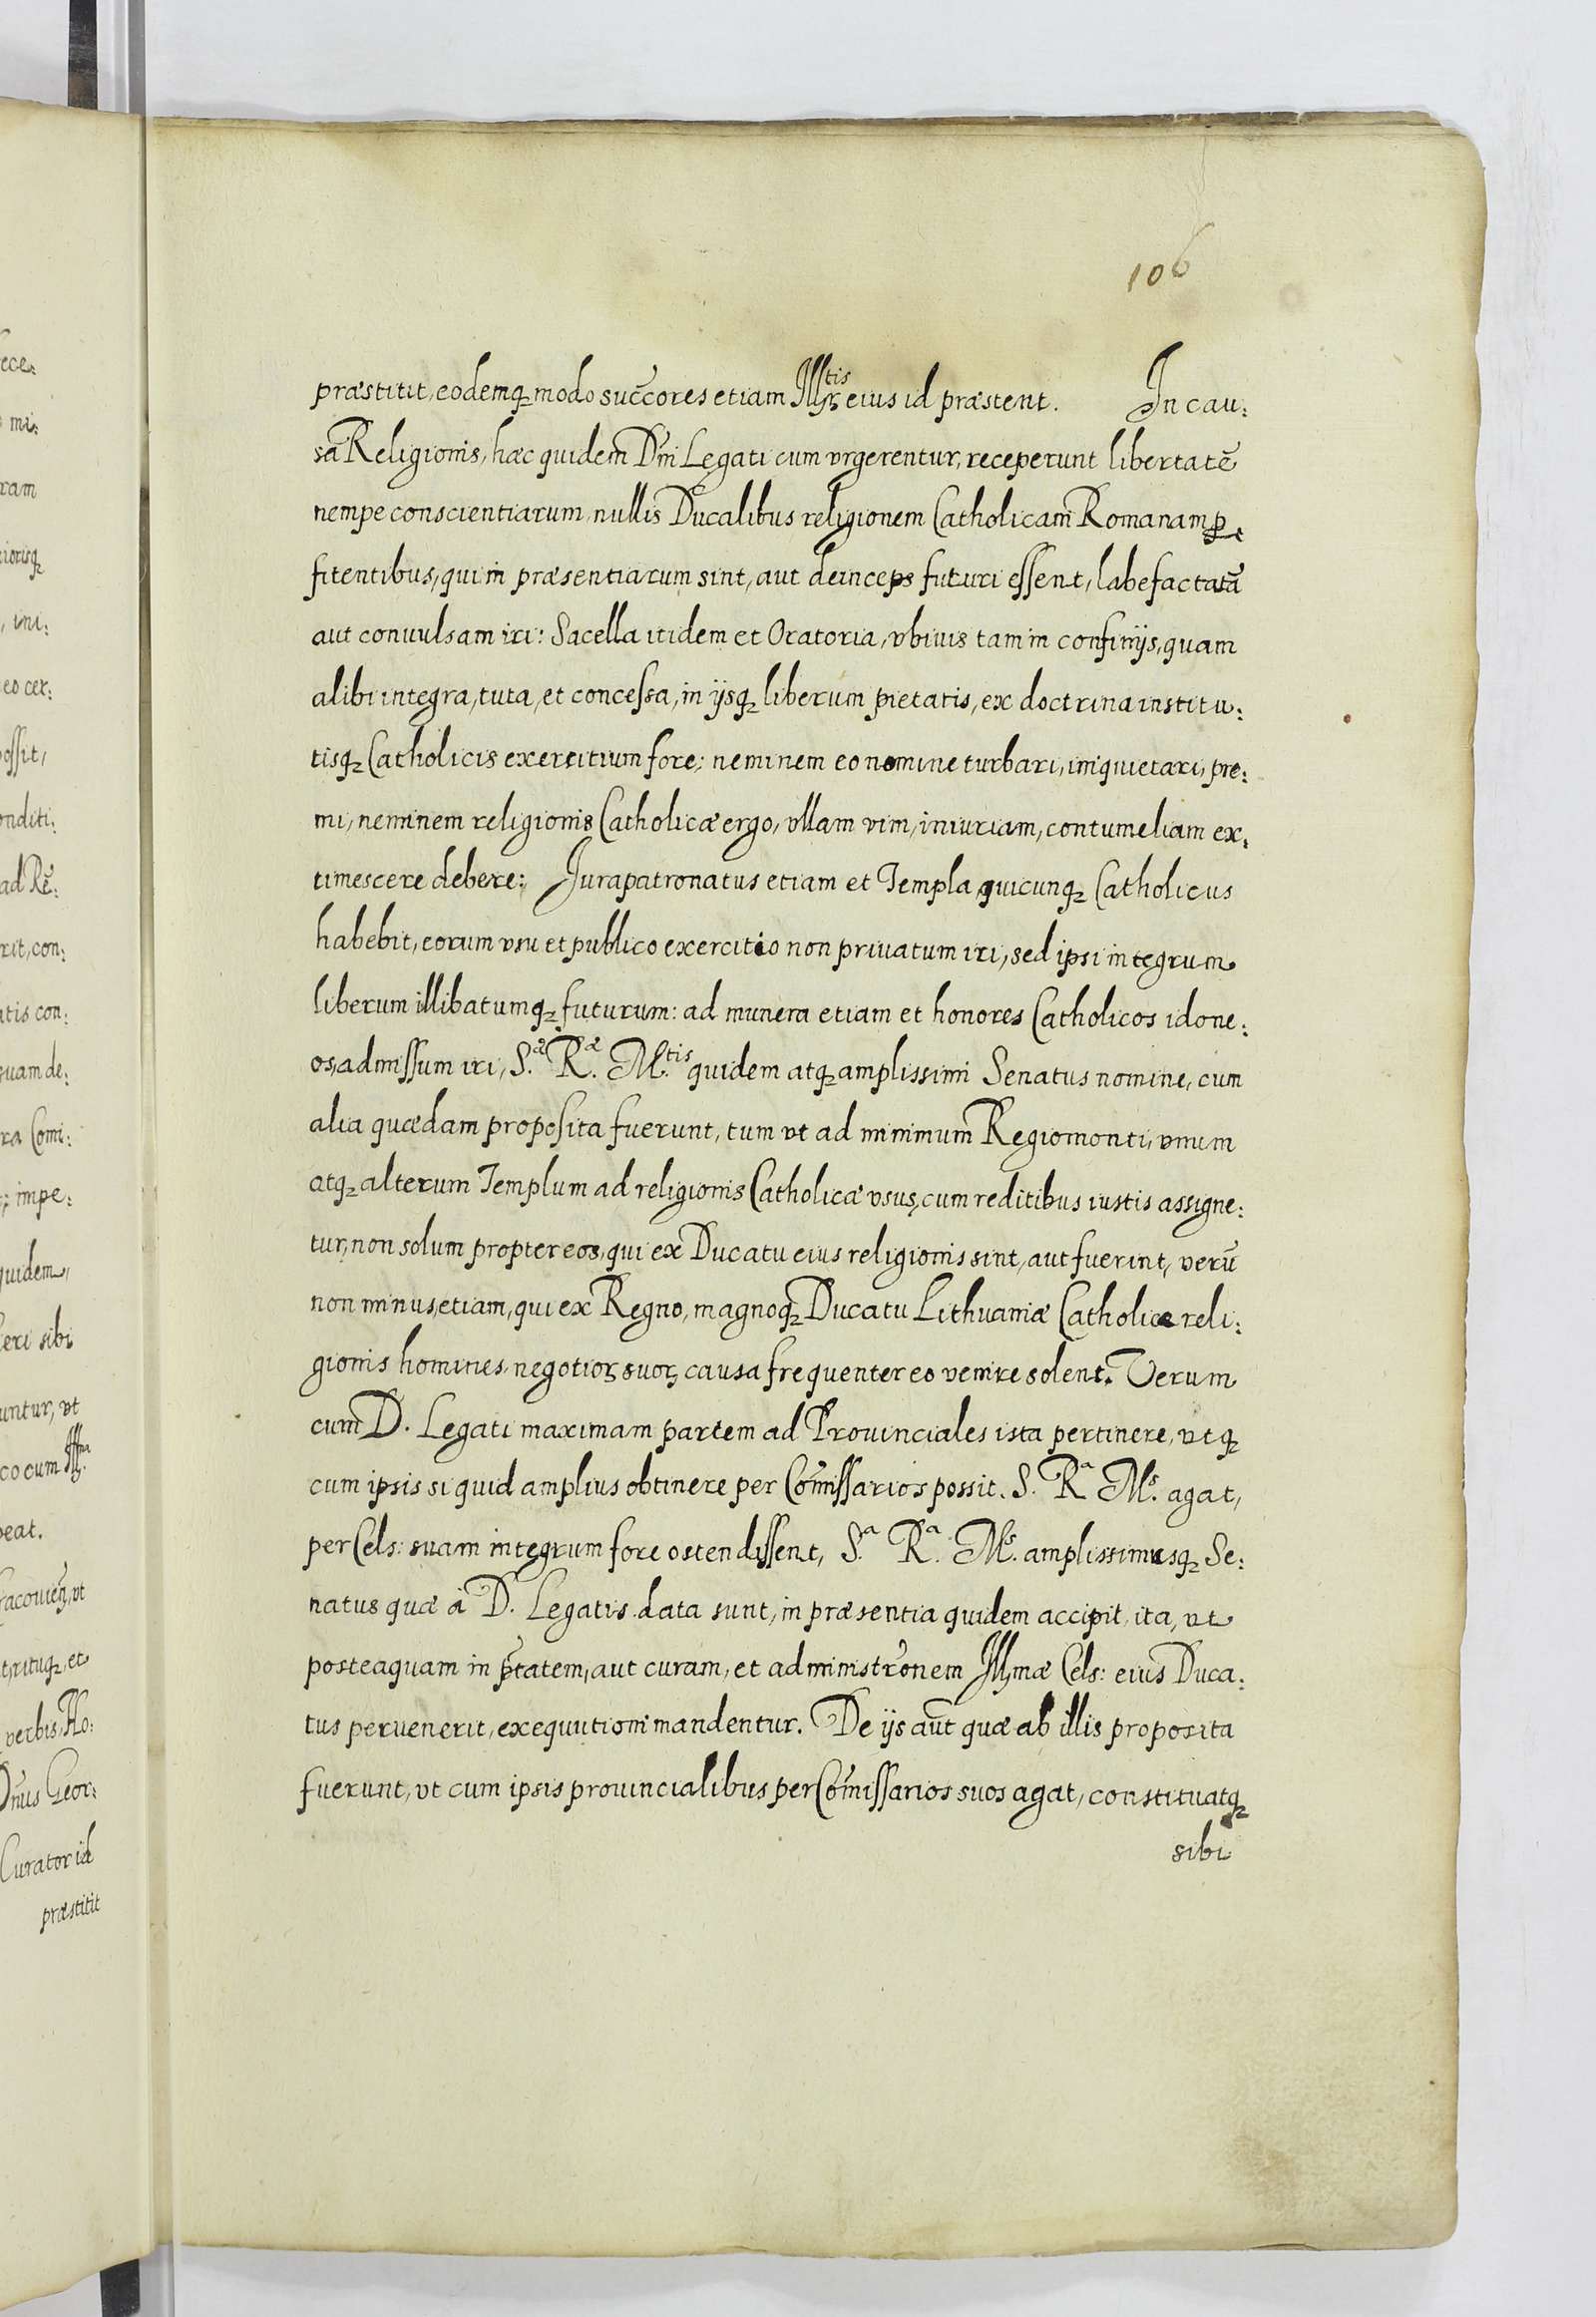 106
præstitit, eodemq; modo succ̃ores etiam Ill.tis eius id præstent. In cau:
sa Religionis, hæc quidem Dñi Legati cum vrgerentur, receperunt libertatẽ
nempe conscientiarum, nullis Ducalibus religionem Catholicam Romanam ꝓ:
fitentibus, qui in præsentiarum sint, aut deinceps futuri essent, labefactatã
aut conuulsam iri: Sacella itidem et Oratoria, vbiuis tam in confinijs, quam
alibi integra, tuta, et concessa, in ijsq; liberum pietatis, ex doctrina institu:
tisq; Catholicis exercitium fore; neminem eo nomine turbari, inquietari, pre:
mi, neminem religionis Catholicæ ergo, vllam vim, iniuriam, contumeliam ex:
timescere debere; Jurapatronatus etiam et Templa quicunq; Catholicus
habebit, eorum vsu et publico exercitio non priuatum iri, sed ipsi integrum
liberum illibatumq; futurum: ad munera etiam et honores Catholicos idone:
os, admissum iri, S.æ R.æ M.tis quidem atq; amplissimi Senatus nomine, cum
alia quædam proposita fuerunt, tum vt ad minimum Regiomonti, vnum
atq; alterum Templum ad religionis Catholicæ vsus, cum reditibus iustis assigne:
tur, non solum propter eos, qui ex Ducatu eius religionis sint, aut fuerint, verũ
non minus, etiam, qui ex Regno, magnoq; Ducatu Lithuaniæ Catholicæ reli:
gionis homines negotioꝝ suoꝝ causa frequenter eo venire solent. Verum
cum D. Legati maximam partem ad Prouinciales ista pertinere, vtq;
cum ipsis si quid amplius obtinere per Com̃issarios possit. S. R.a M.s agat,
per Cels: suam integrum fore ostendissent, S.a R.a M.s amplissimusq; Se:
natus quæ à D. Legatis data sunt, in præsentia quidem accipit, ita, vt
posteaquam in ptãtem, aut curam, et administrõnem Illmæ Cels: eius Duca:
tus peruenerit, exequutioni mandentur. De ijs aũt quæ ab illis proposita
fuerunt, vt cum ipsis prouincialibus per Com̃issarios suos agat, constituatq;
sibi